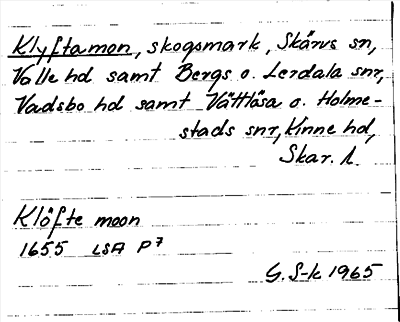 Klyftamon, skogsmark, Skärvs sn,
Valle hd samt Bergs o. Lerdala snr,
Vadsbo hd samt Vättlösa o. Holme-
stads snr, Kinne hd,
Skar. l.
Klöfte moon
1655 LSA P7
G. S-k 1965